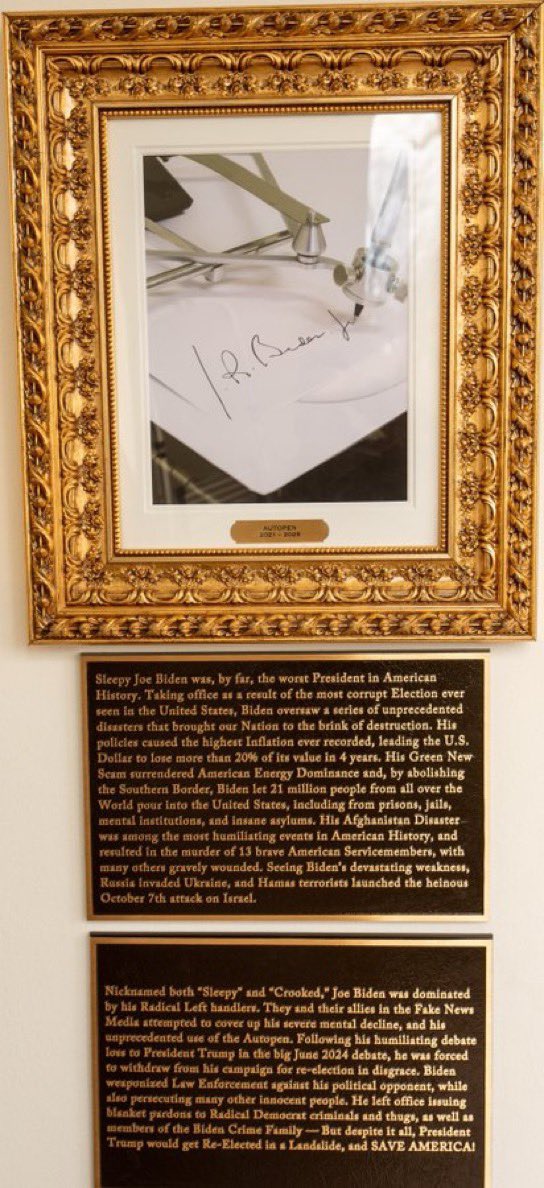 J. R. Biden Jr
AUTOPEN
2021 - 2025
Sleepy Joe Biden was, by far, the worst President in American
History. Taking office as a result of the most corrupt Election ever
seen in the United States, Biden oversaw a series of unprecedented
disasters that brought our Nation to the brink of destruction. His
policies caused the highest Inflation ever recorded, leading the U.S.
Dollar to lose more than 20% of its value in 4 years. His Green New
Scam surrendered American Energy Dominance and, by abolishing
the Southern Border, Biden let 21 million people from all over the
World pour into the United States, including from prisons, jails,
mental institutions, and insane asylums. His Afghanistan Disaster
was among the most humiliating events in American History, and
resulted in the murder of 13 brave American Servicemembers, with
many others gravely wounded. Seeing Biden's devastating weakness,
Russia invaded Ukraine, and Hamas terrorists launched the heinous
October 7th attack on Israel.
Nicknamed both "Sleepy" and "Crooked," Joe Biden was dominated
by his Radical Left handlers. They and their allies in the Fake News
Media attempted to cover up his severe mental decline, and his
unprecedented use of the Autopen. Following his humiliating debate
loss to President Trump in the big June 2024 debate, he was forced
to withdraw from his campaign for re-election in disgrace. Biden
weaponized Law Enforcement against his political opponent, while
also persecuting many other innocent people. He left office issuing
blanket pardons to Radical Democrat criminals and thugs, as well as
members of the Biden Crime Family — But despite it all, President
Trump would get Re-Elected in a Landslide, and SAVE AMERICA!